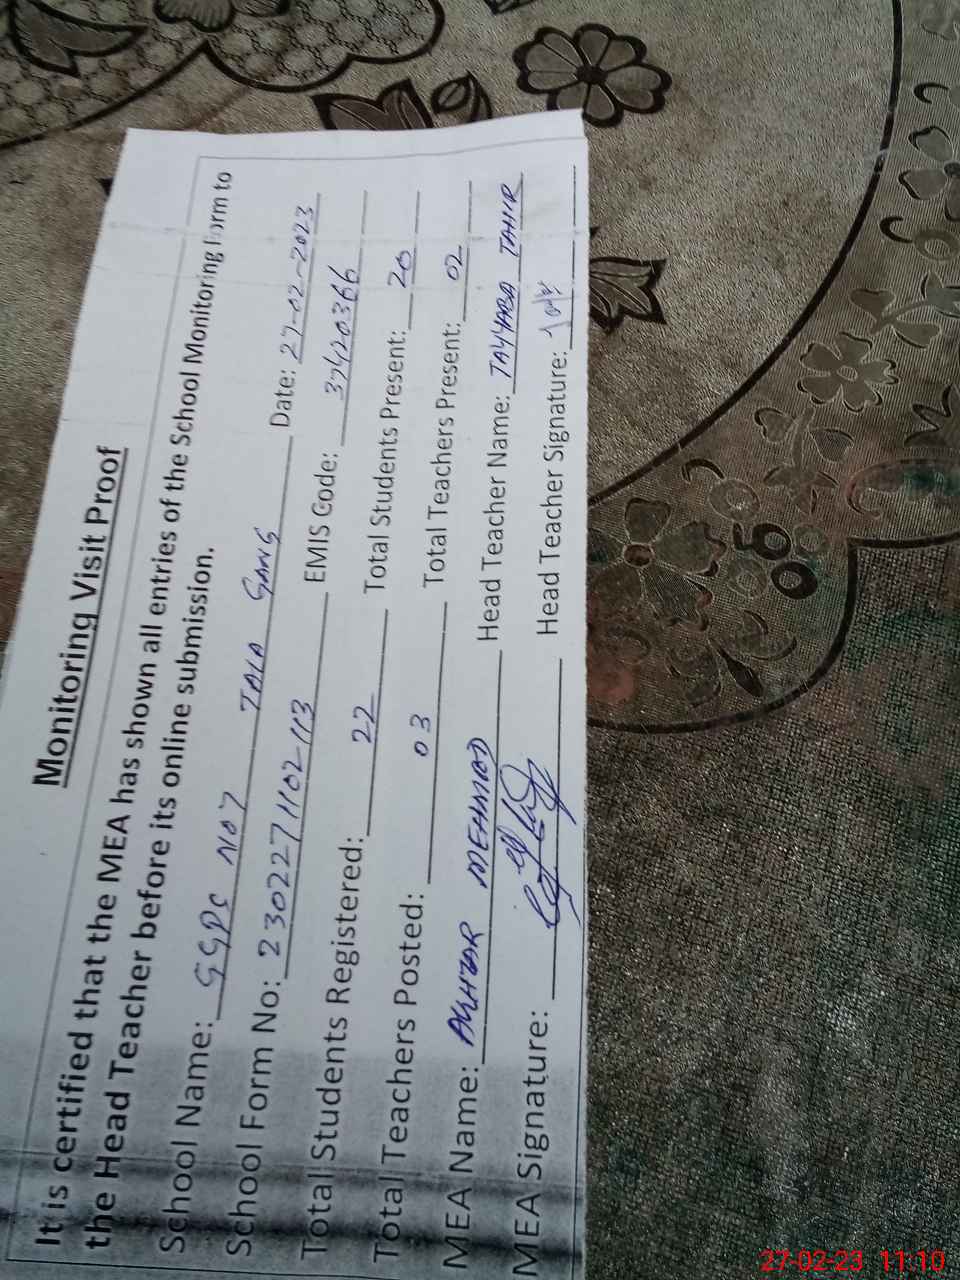 Monitoring Visit Proof
It is certified that the MEA has shown all entries of the School Monitoring Form to
the Head Teacher before its online submission.
School Name: GGPS NO7 TALA GANG Date: 27-02-2023
School Form No: 2302271102-113 EMIS Code: 37420366
Total Students Registered: 22 Total Students Present: 20
Total Teachers Posted: 03 Total Teachers Present: 02
MEA Name: MEHMOOD Head Teacher Name: TAYYABA TAHIR
MEA Signature: Head Teacher Signature:
27-02-23 11:10